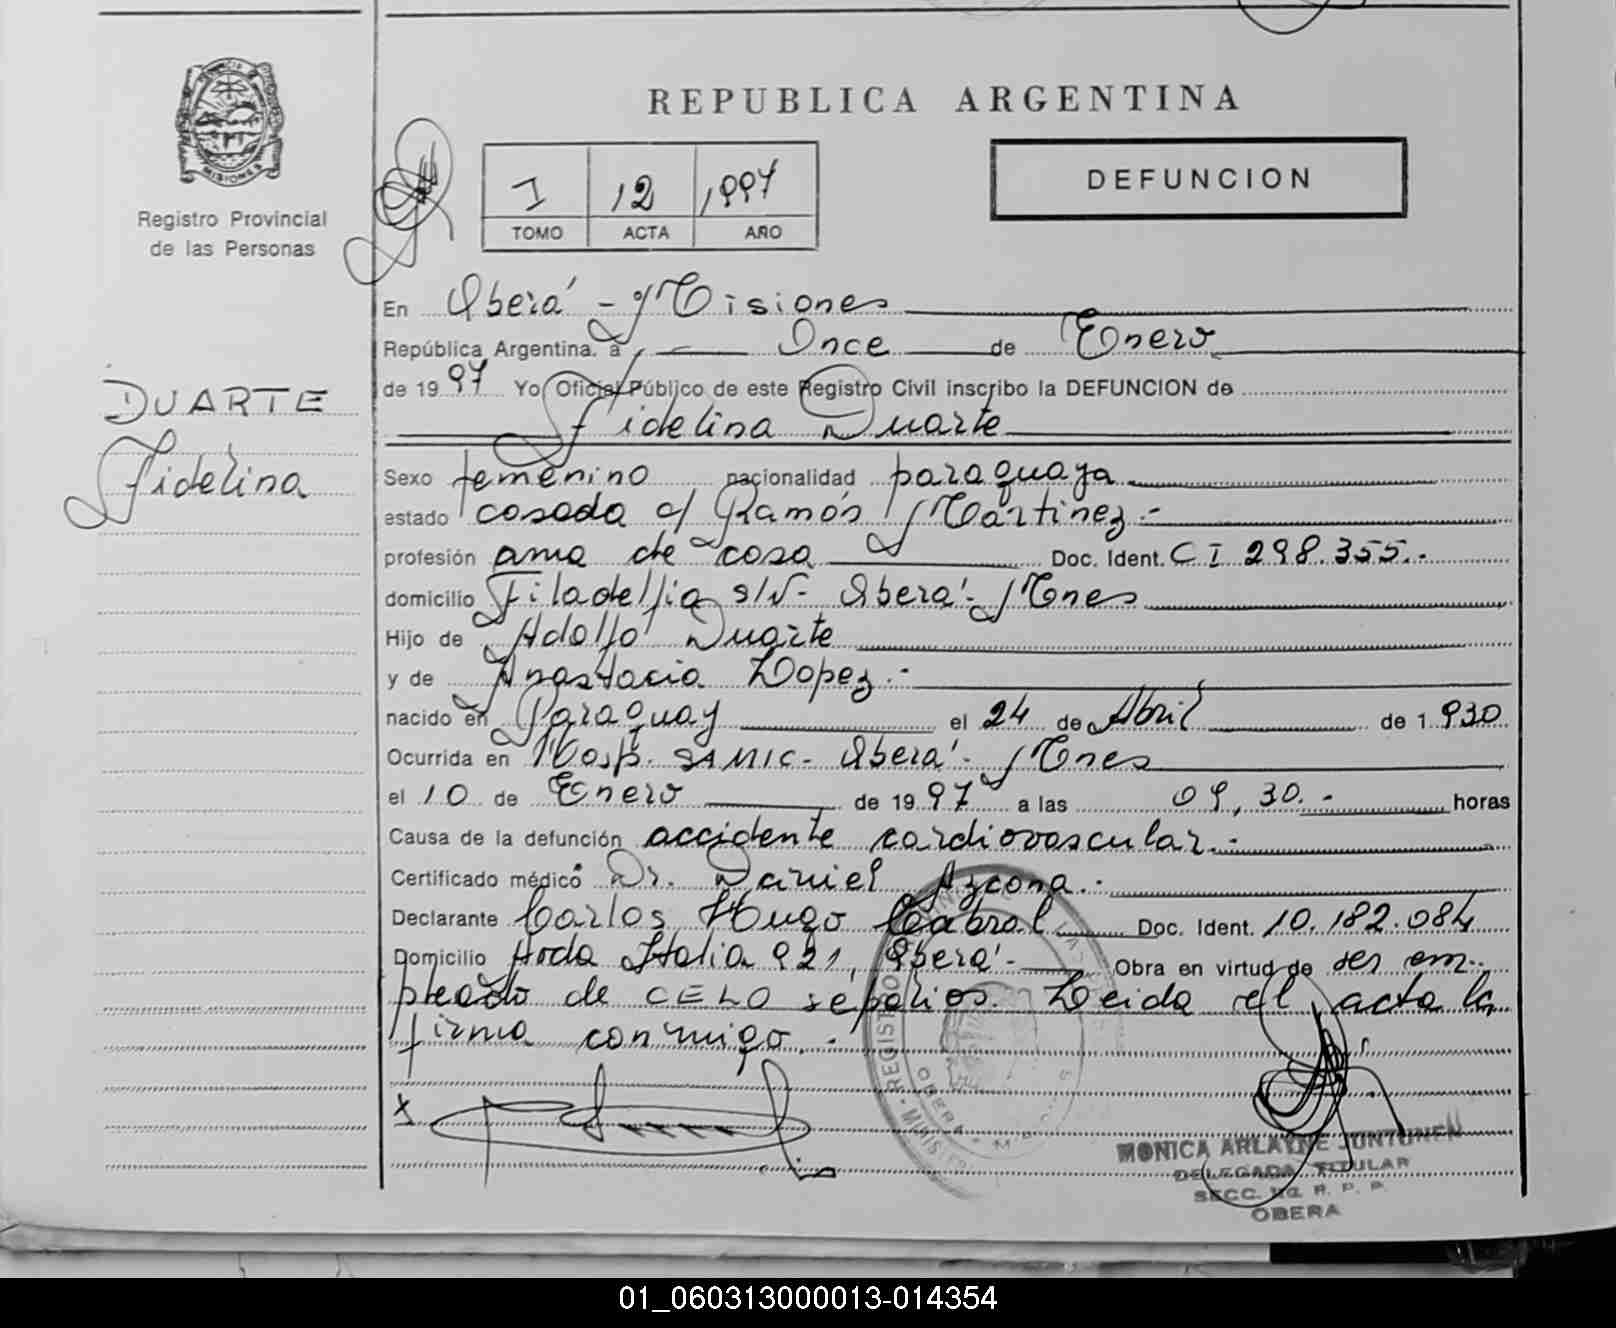 REPUBLICA ARGENTINA
PROVINCIA DE MISIONES
Registro Provincial
de las Personas
I 12 1997
TOMO ACTA AÑO
DEFUNCION
DUARTE
Fidelina
En Oberá - Misiones
República Argentina. a Once de Enero
de 1997 Yo Oficial Público de este Registro Civil inscribo la DEFUNCION de
Fidelina Duarte
Sexo femenino nacionalidad paraguaya
estado casada c/ Ramós Martinez.-
profesión ama de casa Doc. Ident. C I 298.355.-
domicilio Filadelfia s/N- Oberá - Mnes
Hijo de Adolfo Duarte
y de Anastacia Lopez.-
nacido en Paraguay el 24 de Abril de 1.930
Ocurrida en Hosp. SAMIC- Oberá - Mnes
el 10 de Enero de 1997 a las 09,30.- horas
Causa de la defunción accidente cardiovascular.-
Certificado médico Dr. Daniel Azcona.-
Declarante Carlos Hugo Cabral Doc. Ident. 10.182.084
Domicilio Avda Italia 921, Oberá.- Obra en virtud de ser em-
pleado de CELO sepelios. Leida el acta la
firma conmigo.-
x
MONICA ARLAYNE JUNTUNEN
DELEGADA TITULAR
SECC. R. P. P.
OBERA
01_060313000013-014354